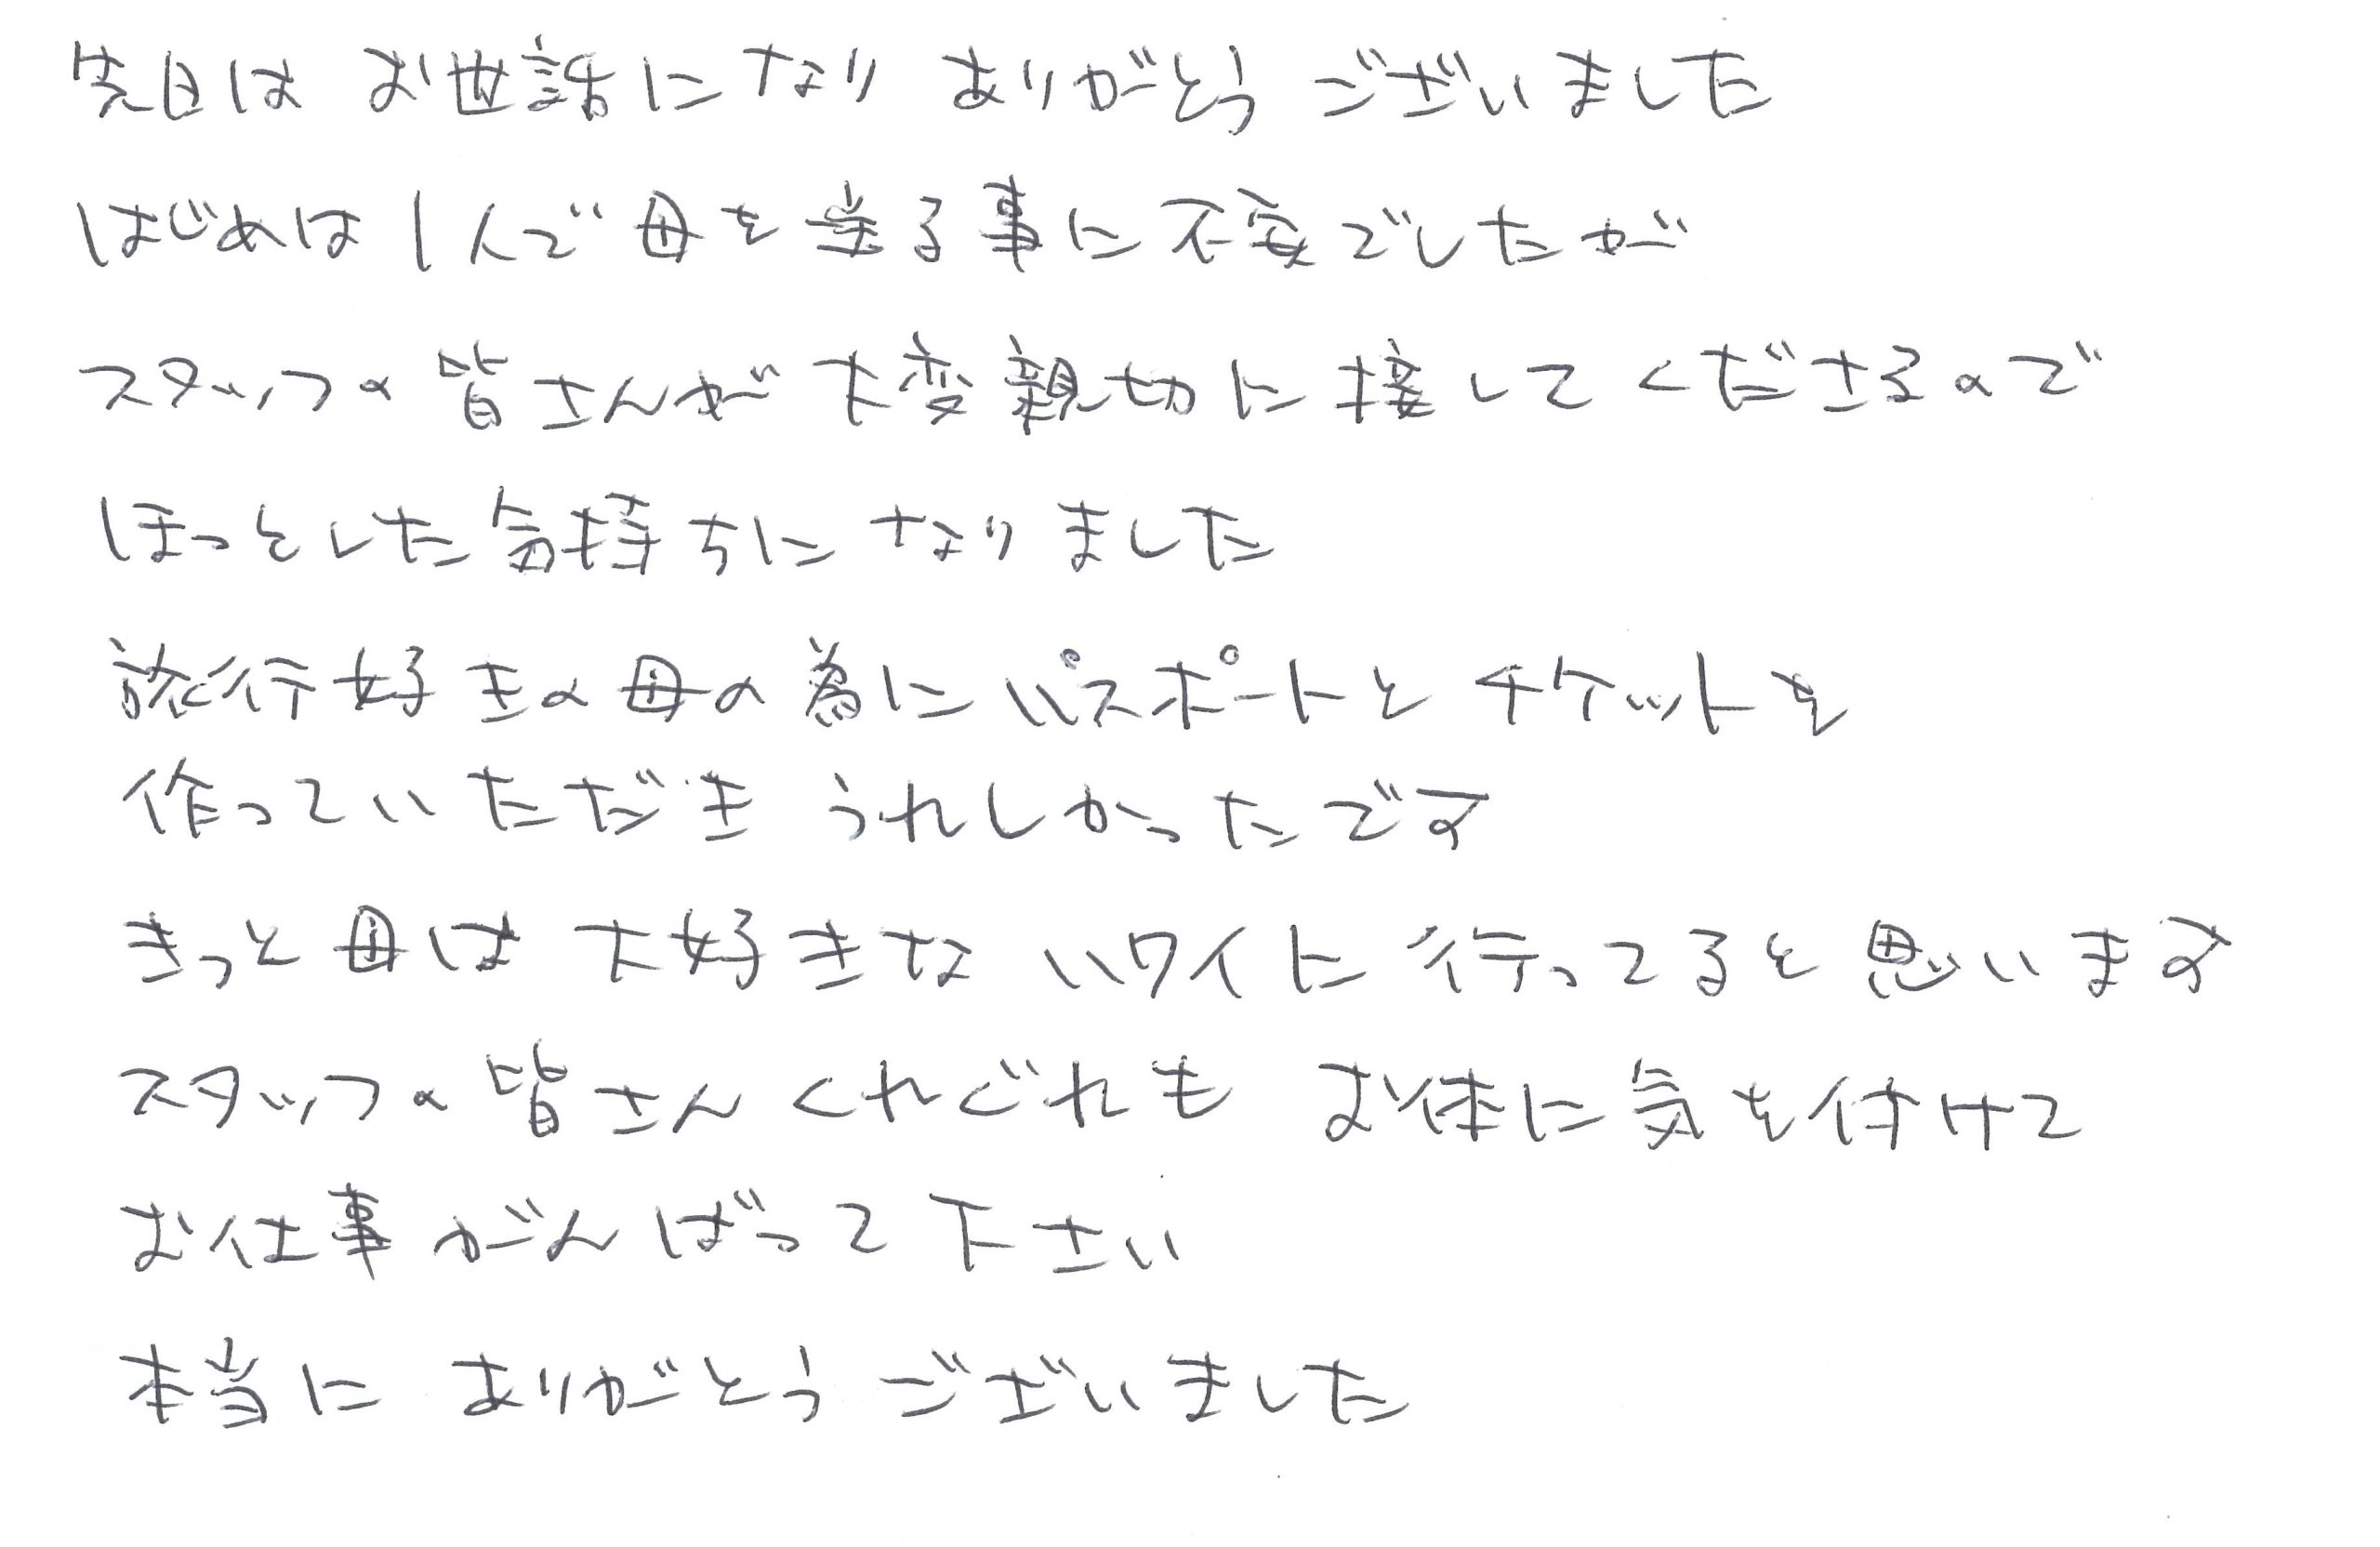 先日は お世話になり ありがとう ございました
はじめは 1人で 母を 送る事に 不安でしたが
スタッフの 皆さんが 大変親切に 接して くださるので
ほっとした 気持ちに なりました
旅行好きの母の為に パスポートと チケットを
作っていただき うれしかったです
きっと 母は 大好きな ハワイに 行ってると 思います
スタッフの 皆さん くれぐれも お体に 気を付けて
お仕事 がんばって 下さい
本当に ありがとう ございました